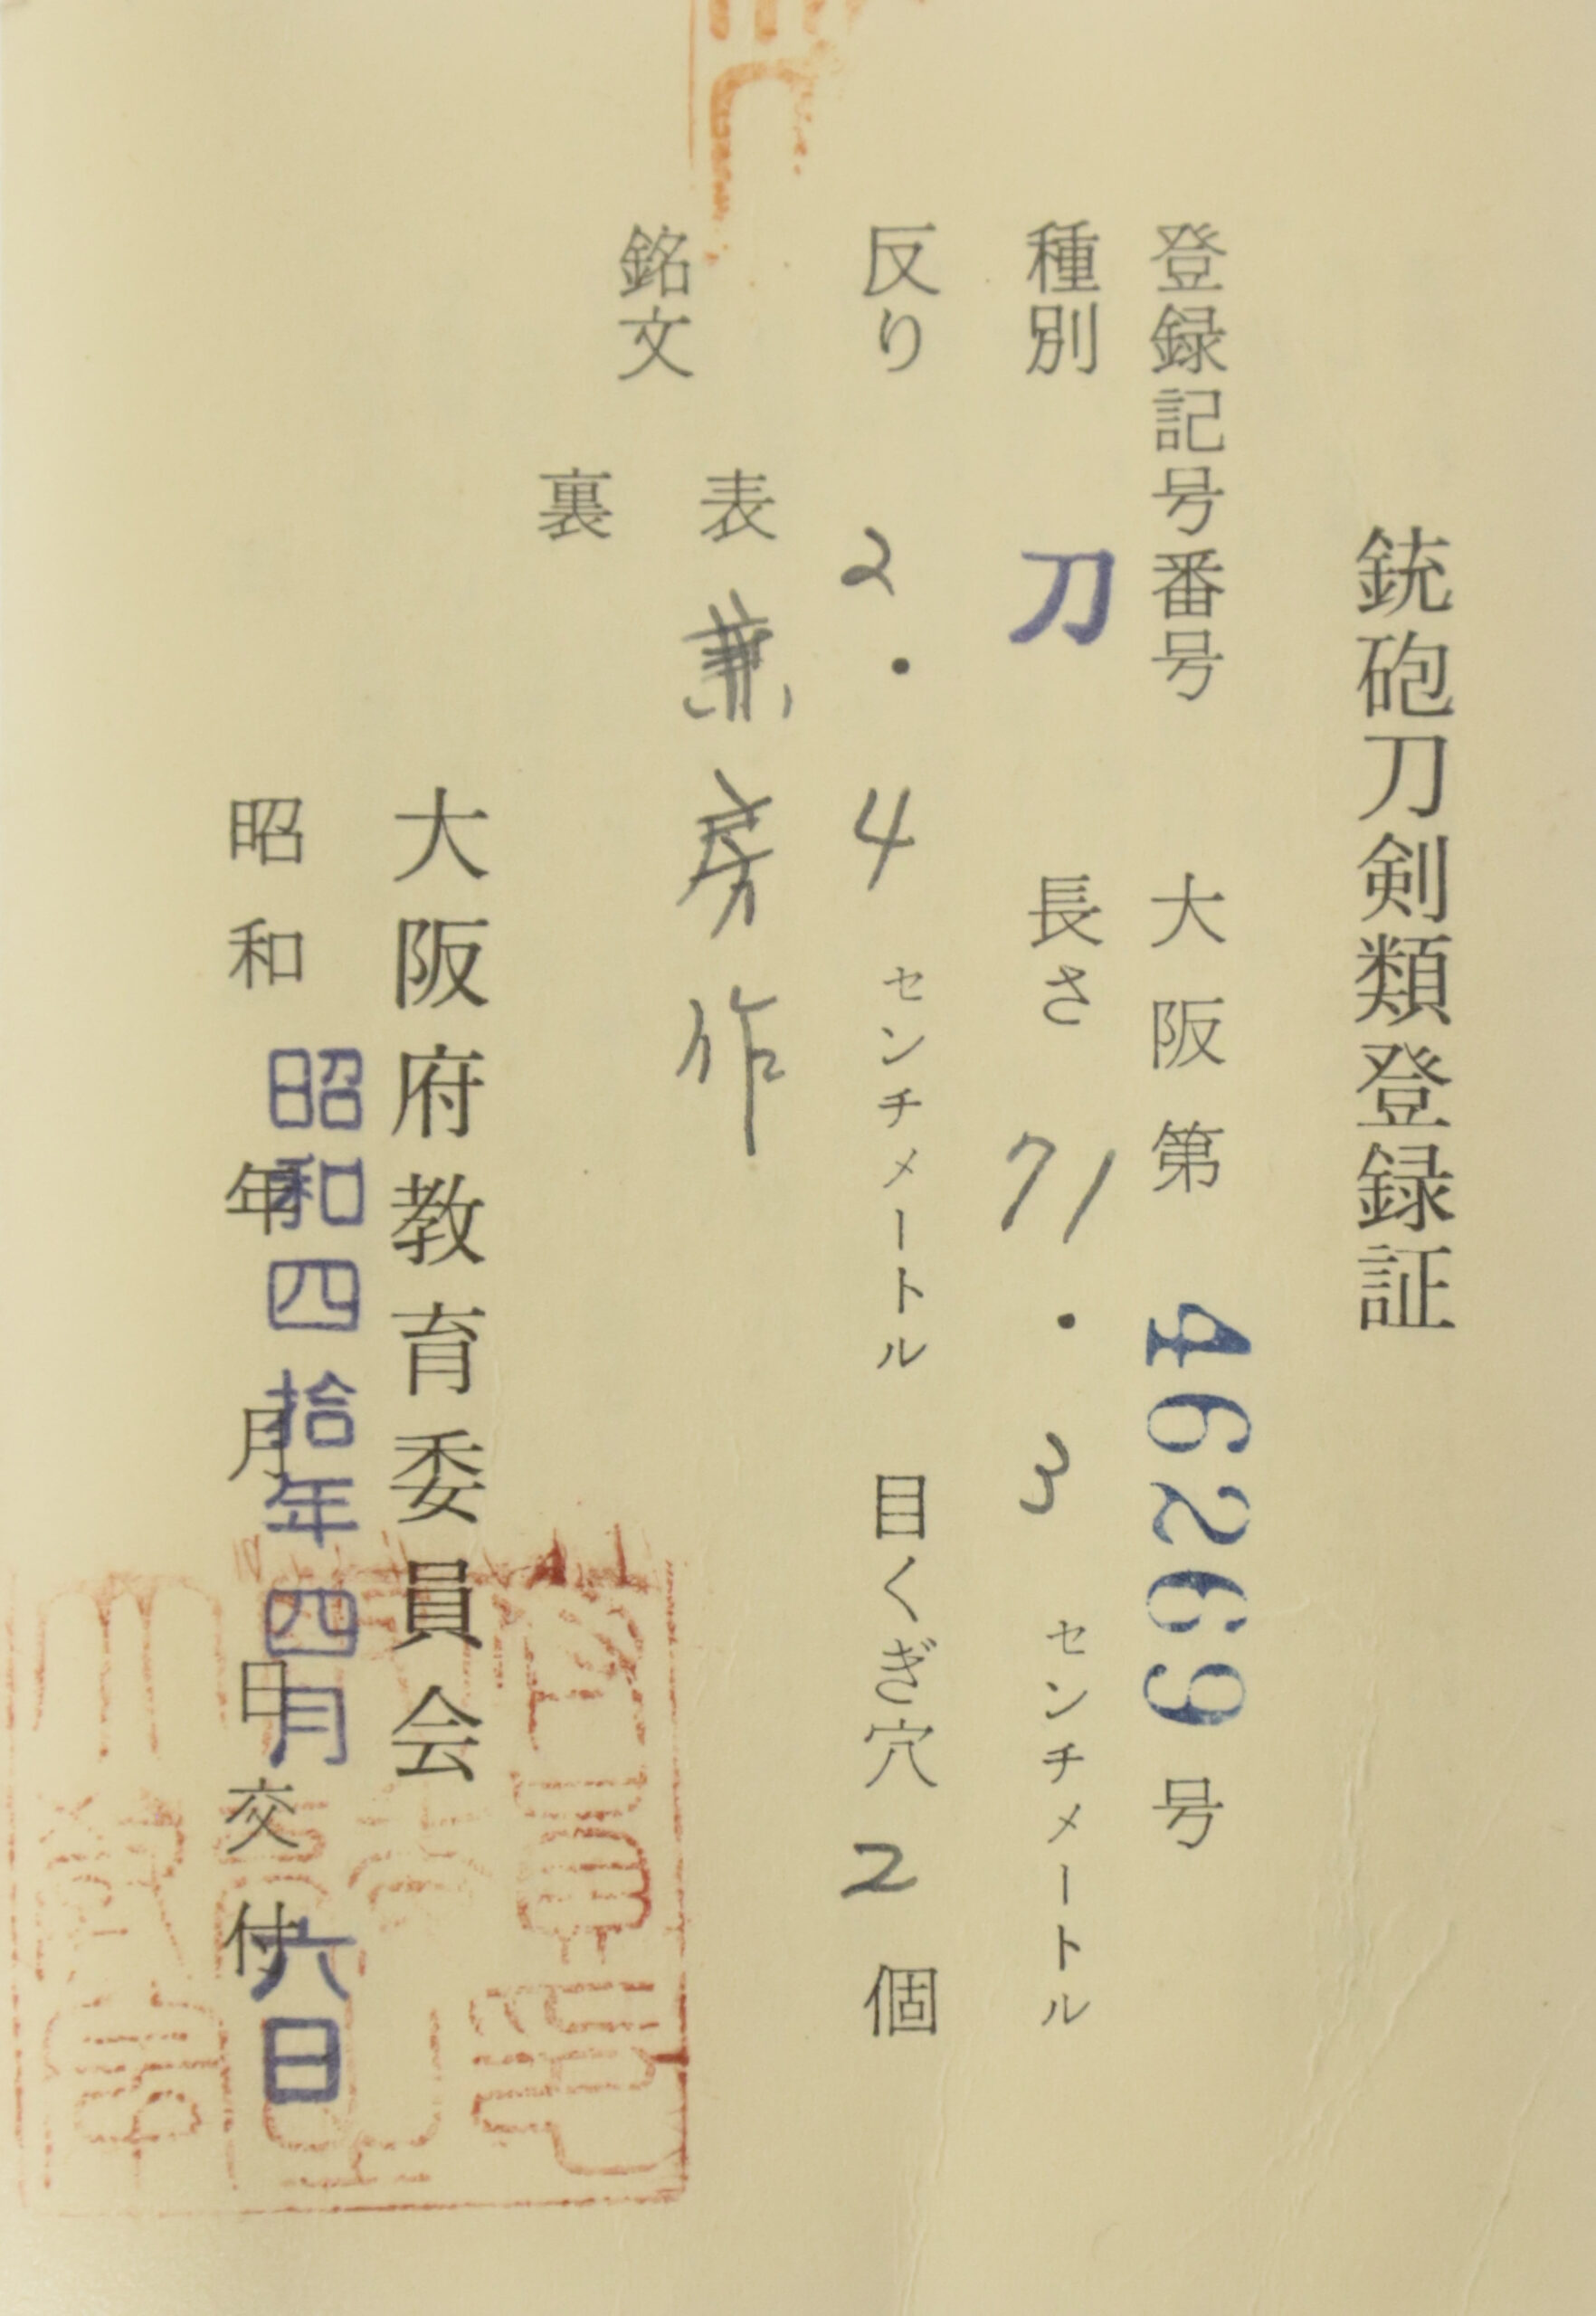 銃砲刀剣類登録証
登録記号番号 大阪第 46269 号
種別 刀 長さ 71.3 センチメートル
反り 2.4 センチメートル 目くぎ穴 2 個
銘文
表 兼房作
裏
大阪府教育委員会
昭和四拾年四月六日
昭和 年 月 日交付